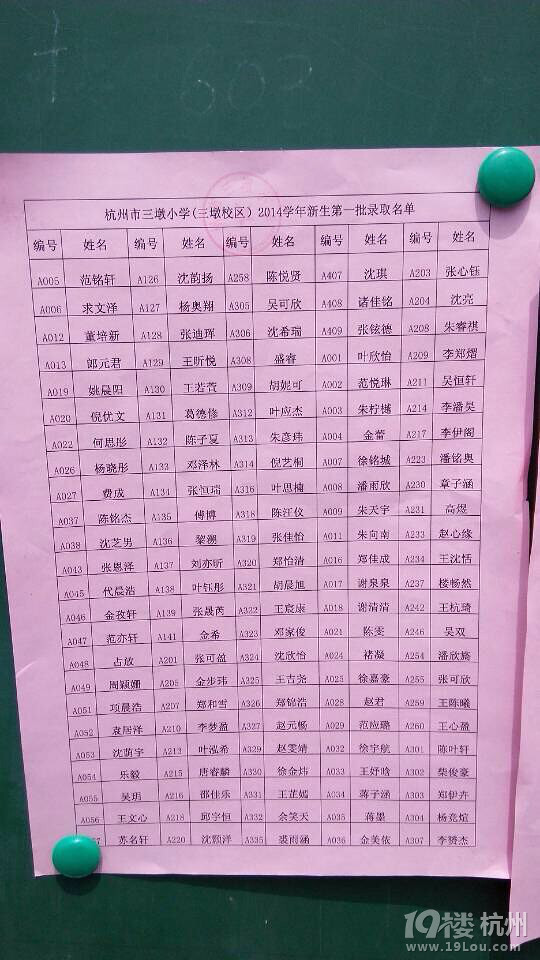 杭州市三墩小学(三墩校区) 2014学年新生第一批录取名单
编号 姓名 编号 姓名 编号 姓名 编号 姓名 编号 姓名
A005 范铭轩 A126 沈韵扬 A258 陈悦贤 A407 沈琪 A203 张心钰
A006 求文泽 A127 杨奥翔 A305 吴可欣 A408 诸佳铭 A204 沈亮
A012 董培新 A128 张迪珲 A306 沈希瑞 A409 张铉德 A208 朱睿祺
A013 郎元君 A129 王昕悦 A308 盛睿 A001 叶欣怡 A209 李郑熠
A019 姚晨阳 A130 王若萱 A309 胡妮可 A002 范悦琳 A211 吴恒轩
A020 倪优文 A131 葛德修 A312 叶应杰 A003 朱柠樾 A214 李潘昊
A022 何思彤 A132 陈子夏 A313 朱彦玮 A004 金蕾 A217 李伊阁
A026 杨晓彤 A133 邓泽林 A314 倪艺桐 A007 徐铭城 A223 潘铭奥
A027 费成 A134 张恒瑞 A316 叶思楠 A008 潘雨欣 A230 章子涵
A037 陈铭杰 A135 傅博 A318 陈汪仪 A009 朱天宇 A231 高煜
A038 沈芝男 A136 黎溯 A319 张佳怡 A011 朱向南 A233 赵心缘
A043 张恩泽 A137 刘亦昕 A320 郑怡清 A016 郑佳成 A234 王沈恬
A045 代晨浩 A138 叶钰彤 A321 胡晨旭 A017 谢泉泉 A237 楼畅然
A046 金孜轩 A139 张晟芮 A322 王宸康 A018 谢清清 A242 王杭琦
A047 范亦轩 A141 金希 A323 邓家俊 A021 陈雯 A246 吴双
A048 占放 A201 张可盈 A324 沈欣怡 A024 褚凝 A254 潘欣旖
A049 周颖姗 A205 金步玮 A325 王古尧 A025 徐嘉豪 A255 张可欣
A051 项晨浩 A207 郑和雪 A326 郑锦浩 A028 赵君 A259 王陈曦
A052 袁居洋 A210 李梦盈 A327 赵元畅 A029 范应璐 A260 王心盈
A053 沈萌宇 A213 叶泓希 A329 赵雯婧 A032 徐宇航 A301 陈叶轩
A054 乐毅 A215 唐睿麟 A330 徐金炜 A033 王妤晗 A302 柴俊豪
A055 吴玥 A216 邵佳乐 A331 王芷嫣 A034 蒋子涵 A303 郑伊卉
A056 王文心 A218 邱宇恒 A332 余笑天 A035 蒋墨 A304 杨竞煊
苏名轩 A220 沈颢洋 A335 裘雨涵 A036 金美依 A307 李赟杰
19楼 杭州
www.19lou.com